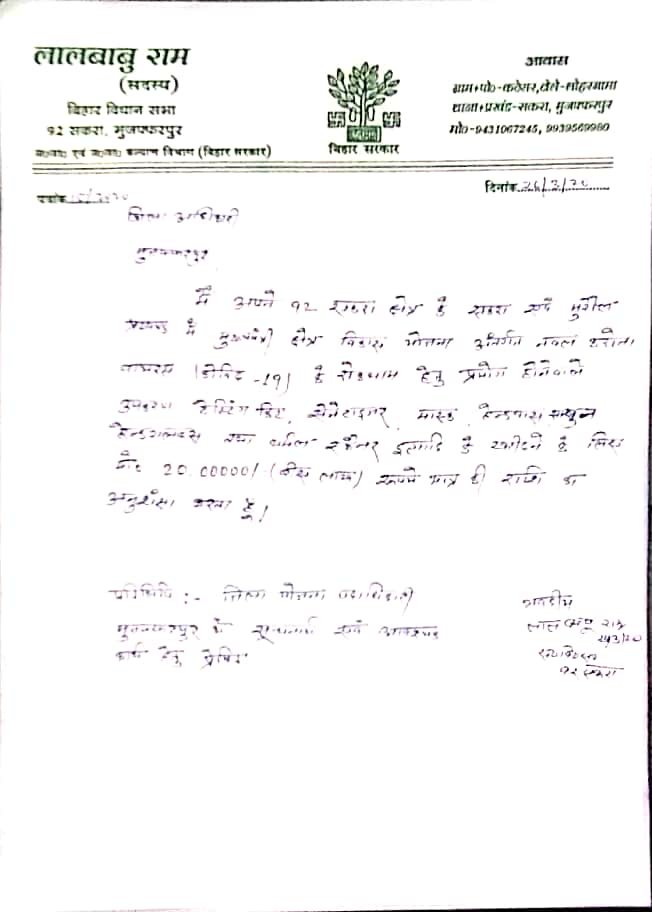 लालबाबु राम
(सदस्य)
बिहार विधान सभा
92 सकरा, मुजफ्फरपुर
अ०जा० एवं अ०ज०जा० कल्याण विभाग (बिहार सरकार)
बिहार सरकार
आवास
ग्राम+पो०-कठेसर, टोले-मोहरगामा
थाना+प्रखंड-सकरा, मुजफ्फरपुर
मो०-9431067245, 9939569980
पत्रांक
दिनांक 26/3/20
जिला अधिकारी
मुजफ्फरपुर
मैं अपने 92 सकरा क्षेत्र के सकरा एवं मुरौल
प्रखण्ड में मुख्यमंत्री क्षेत्र विकास योजना अंतर्गत नवल करोना
वायरस (कोविड-19) के रोकथाम हेतु प्रयोग होनेवाले
उपकरण टेस्टिंग किट, सेनेटाइजर, मास्क, हैन्डवास
तथा थर्मल स्कैनर इत्यादि के खरीदने के लिए
20.00000/ (बीस लाख) रूपये मात्र की राशि का
अनुशंसा करता हूँ।
प्रतिलिपि :- जिला योजना पदाधिकारी
मुजफ्फरपुर को सूचनार्थ एवं आवश्यक
कार्य हेतु प्रेषित
भवदीय
लाल बाबू राम
26/3/20
92 सकरा